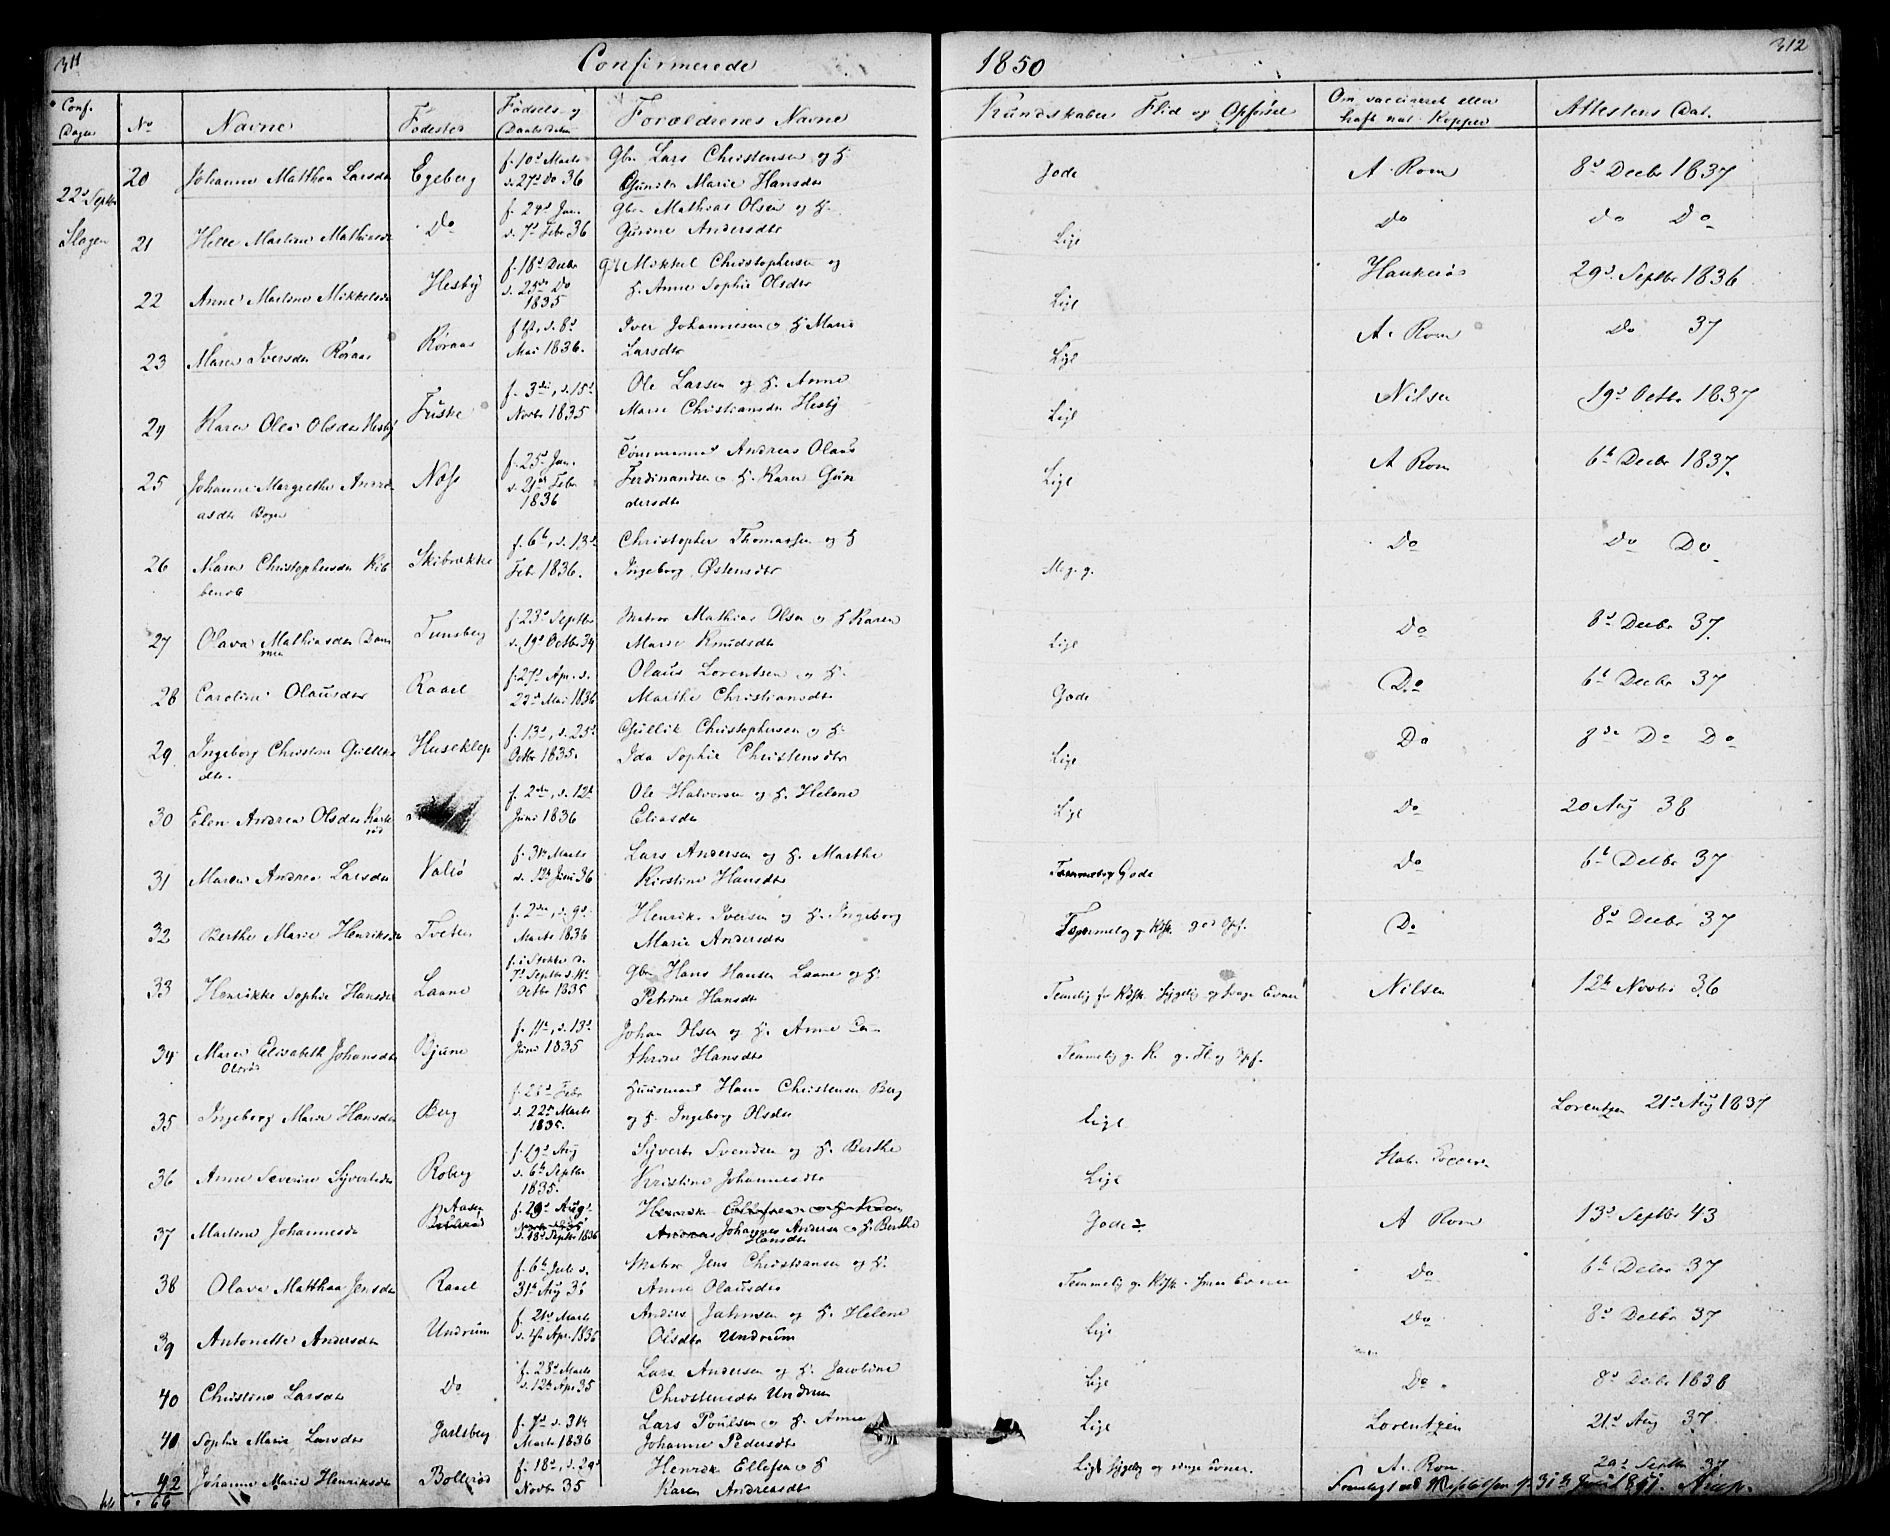 311 Confirmerede 1850 312
Conf. Dagen No Navne Fødested Fødsels- og Daabsdatum Forældrenes Navne Kundskaber Flid og Opførsel Om vaccineret eller haft nat. Kopper Attestens Dat.
22d Septbr Slagen
20 Johanne Matthea Larsdtr Egeberg f. 10d Marts d. 27d Do 36 Gbr Lars Christensen og H. Gunild Marie Hansdtr Gode A. Rom 8d Decbr 1837
21 Helle Martine Mathiasdtr Do f. 24d Jan. d. 7d Febr 36 Gbr Mathias Olsen og H. Gurine Andersdtr Lige Do do Do
22 Anne Martine Mikkelsdtr Hesby f. 18d Decbr d. 25de Do 1835 Gbr Mikkel Christophersen og H. Anne Sophie Olsdtr Lige Haukerøs 29d Septbr 1836
23 Maren Iversdtr Røraas Røraas f 4t, d. 8d Mai 1836. Iver Johannesen og H Marie Larsdtr Lige A. Rom Do 37
24 Karen Olea Olsdtr Hesby Fuske f. 3die, d. 15d Novbr 1835 Ole Larsen og H. Anne Marie Christiansdtr Hesby Lige Nilsen 19d Octbr 1837
25 Johanne Margrethe Andreasdtr Bogen Næss f. 25d Jan. d. 21d Febr 1836 Tømmermand Andreas Olaus Ferdinandsen og H. Karen Gundersdtr Lige A Rom 6t Decbr 1837.
26 Maren Christophersdtr Skibrække f. 6t, d. 13d Febr 1836. Christopher Thomassen og H Ingeborg Østensdtr Meg. g. Do Do Do
27 Olava Mathiasdtr Tunsberg f. 23d Septbr d. 19d Octbr 34 Matros Mathias Olsen og H Karen Marie Knudsdtr Lige Do 8d Decbr 37.
28 Caroline Olausdtr Raael f. 27d Apr. d. 22d Mai 1836 Olaus Lorentsen og H. Marthe Christiansdtr Gode Do 6t Decbr 37
29. Ingeborg Christine Gulliksdtr. Huseklep f. 13d, d. 25d Octbr 1835. Gullik Christophersen og H. Ida Sophie Christensdtr Lige Do 8de Do Do
30 Elen Andrea Olsdtr f. 2den, d. 12t Juni 1836 Ole Halvorsen og H. Helene Eliasdtr Lige Do 20 Aug 38
31 Maren Andrea Larsdtr Valø f. 31te Marts d. 12te Juni 36 Lars Andersen og H. Marthe Kirstine Hansdtr Temmelig Gode Do 6t Decbr 37
32 Berthe Marie Henriksdtr Tveten f. 2den, d. 9d Marts 1836 Henrik Iversen og H. Ingeborg Marie Andersdtr Temmelig g. Kdsk. god Opf. Do 8d Decbr 37
33 Henrikke Sophie Hansdtr Laane 7d Septbr d. 11t Octbr 1835 Gbr Hans Hansen Laane og H. Petrine Hansdtr Nilsen 12te Novbr 36
34 Maren Elisabeth Johansdtr Olsrød Bjune f. 11t, d. 13d Juni 1835 Johan Olsen og H. Anne Cathrine Hansdtr Temmelig g. K. g. Fl. og Opf.
35 Ingeborg Marie Hansdtr Berg Febr d. 22de Marts 1835. Huusmand Hans Christensen Berg og H. Ingeborg Olsdtr Lige Lorentzen 21d Aug 1837
36 Anne Severine Syvertsdtr Roberg f. 19d Aug d. 6t Septbr 1835. Syvert Svendsen og H Berthe Kristine Johannesdtr Lige
37 Martine Johannesdtr Aasen f. 29d Aug d. 18d Septbr 1836 Johannes Andersen og H Berthe Hansdtr Gode A Rom 13d Septbr 43
38 Olava Matthea Jensdtr Raael f. 6t Juli d. 31te Aug 35 Matros Jens Christiansen og H. Anne Olausdtr Temmelig g. Kdsk. Evner Do 6t Decbr 37
39 Antonette Andersdtr Undrum f. 21d Marts d. 4de Apr. 1836 Anders Jahnsen og H. Helene Olsdtr Undrum Lige Do 8d Decbr 37
40 Christine Larsdtr Do f. 28d Marts d. 12te Apr 35 Lars Andersen og H. Jacobine Christensdtr Undrum Lige Do 8d Decbr 1838
41 Sophie Marie Larsdtr Jarlsberg f. 7d d. 31te Marts 1836 Lars Poulsen og H. Anne Johanne Pedersdtr Lige Lorentzen 21d Aug 37
42 Johanne Marie Henriksdtr Bollerød f. 18d, d. 29d Novbr 35 Henrik Ellefsen og H Karen Andreasdtr Lige Sygelig og svage Evner. A. Rom Septbr 37
66